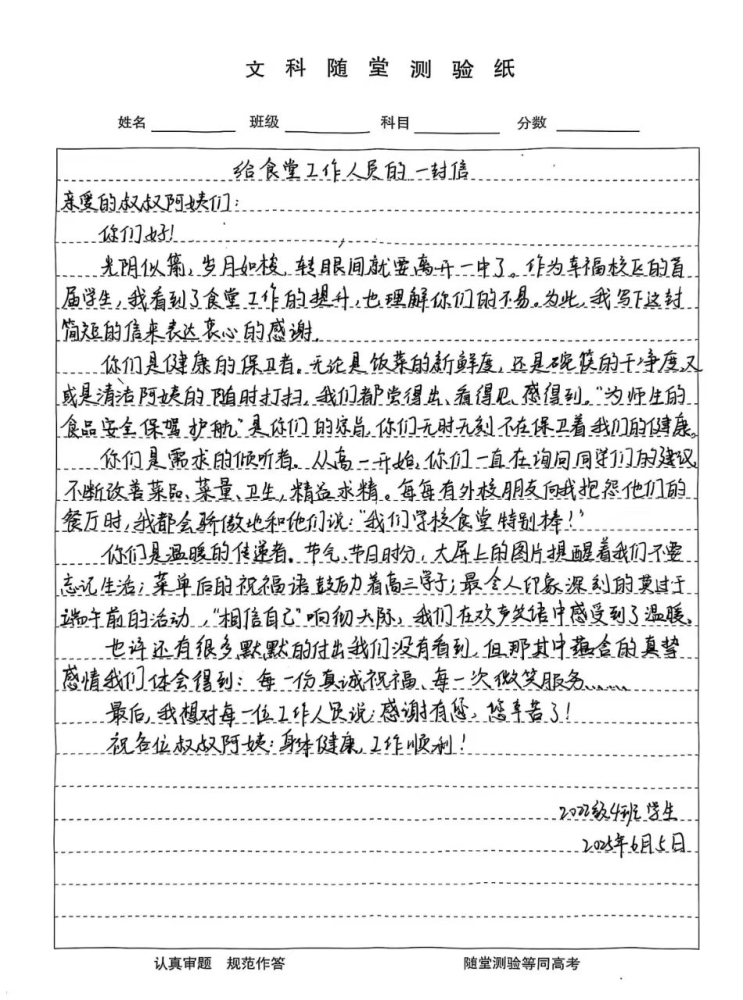 文科随堂测验纸
姓名 班级 科目 分数
给食堂工作人员的一封信
亲爱的叔叔阿姨们：
你们好！
光阴似箭，岁月如梭，转眼间就要离开一中了。作为幸福校区的首
届学生，我看到了食堂工作的提升，也理解你们的不易。为此，我写下这封
简短的信来表达衷心的感谢。
你们是健康的保卫者。无论是饭菜的新鲜度，还是碗筷的干净度，又
或是清洁阿姨的随时打扫，我们都尝得出、看得见、感得到。“为师生的
食品安全保驾护航”是你们的宗旨，你们无时无刻不在保卫着我们的健康。
你们是需求的倾听者。从高一开始，你们一直在询问同学们的建议，
不断改善菜品、菜量、卫生，精益求精。每每有外校朋友向我抱怨他们的
餐厅时，我都会骄傲地和他们说：“我们学校食堂特别棒！”
你们是温暖的传递者。节气、节日时分，大屏上的图片提醒着我们不要
忘记生活；菜单后的祝福语鼓励着高三学子；最令人印象深刻的莫过于
端午前的活动，“相信自己”响彻天际，我们在欢声笑语中感受到了温暖。
也许还有很多默默的付出我们没有看到，但那其中蕴含的真挚
感情我们体会得到：每一份真诚祝福、每一次微笑服务……
最后，我想对每一位工作人员说：感谢有您，您辛苦了！
祝各位叔叔阿姨：身体健康，工作顺利！
2022级4班学生
2025年6月5日
认真审题 规范作答 随堂测验等同高考